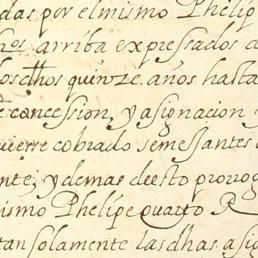 das por el mismo Phelip
hos arriba expressados a
los dhos quinze años hasta
e concession, y asignacion
uiere cobrado semessantes
nte; y demas de esto prorrog
ismo Phelipe quarto R
tan solamente las dhas asig